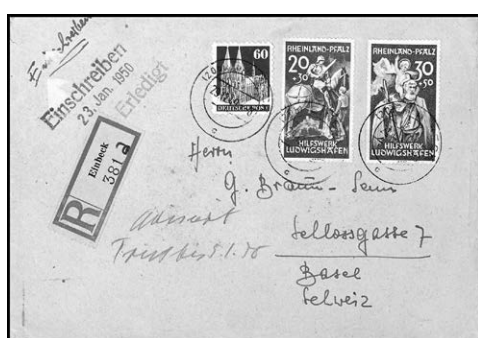 Einschreiben
Einschreiben
23. Jan. 1950
Erledigt
R
Einbeck
381 a
60
DEUTSCHE POST
RHEINLAND-PFALZ
20
+30
HILFSWERK
LUDWIGSHAFEN
RHEINLAND-PFALZ
30
+50
HILFSWERK
LUDWIGSHAFEN
Herrn
G. Braun-Senn
Schlossgasse 7
Basel
Schweiz